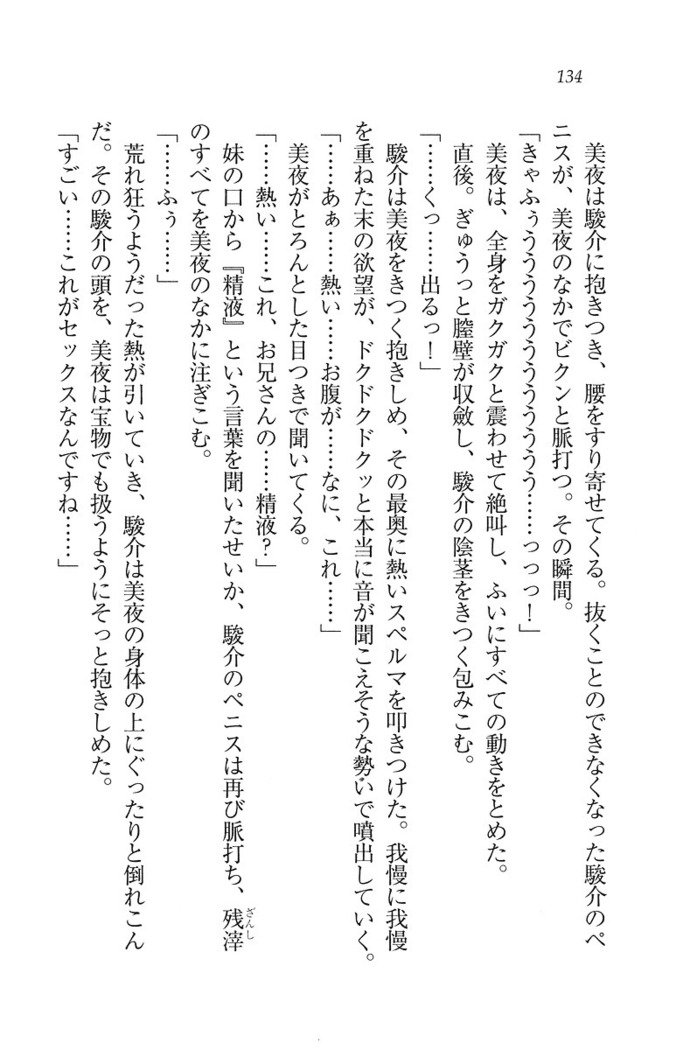 134
美夜は駿介に抱きつき、腰をすり寄せてくる。抜くことのできなくなった駿介のペ
ニスが、美夜のなかでビクンと脈打つ。その瞬間。
「きゃふぅうううううううううう……っっっ！」
美夜は、全身をガクガクと震わせて絶叫し、ふいにすべての動きをとめた。
直後。ぎゅうっと膣壁が収斂し、駿介の陰茎をきつく包みこむ。
「……くっ……出るっ！」
駿介は美夜をきつく抱きしめ、その最奥に熱いスペルマを叩きつけた。我慢に我慢
を重ねた末の欲望が、ドクドクドクッと本当に音が聞こえそうな勢いで噴出していく。
「……あぁ……熱い……お腹が……なに、これ……」
美夜がとろんとした目つきで聞いてくる。
「……熱い……これ、お兄さんの……精液？」
妹の口から『精液』という言葉を聞いたせいか、駿介のペニスは再び脈打ち、残滓ざんし
のすべてを美夜のなかに注ぎこむ。
「……ふぅ……」
荒れ狂うようだった熱が引いていき、駿介は美夜の身体の上にぐったりと倒れこん
だ。その駿介の頭を、美夜は宝物でも扱うようにそっと抱きしめた。
「すごい……これがセックスなんですね……」